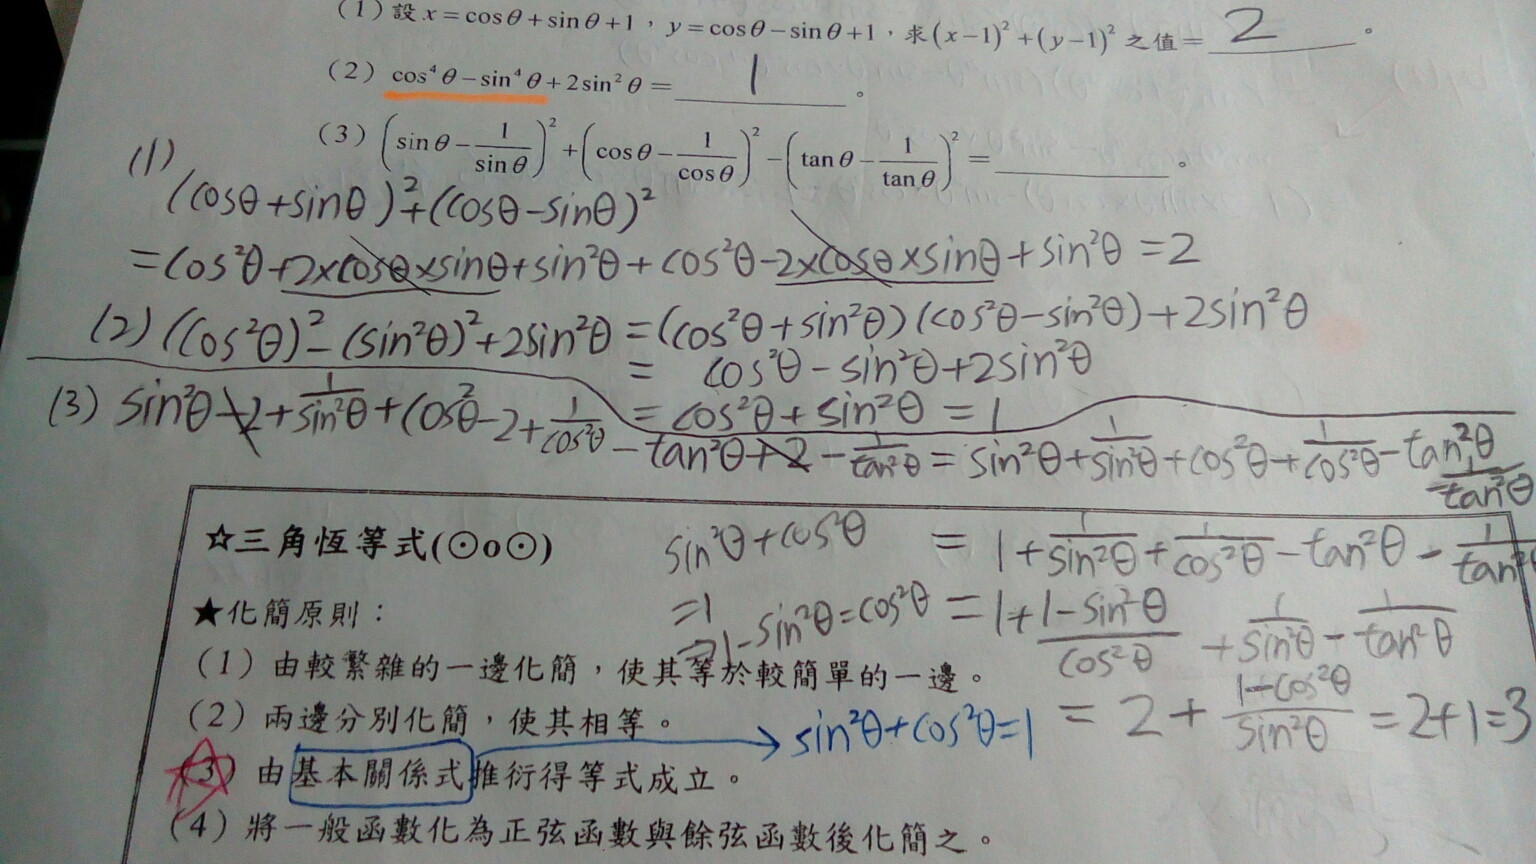 (1) 設 x = cosθ + sinθ + 1，y = cosθ − sinθ + 1，求 (x−1)² + (y−1)² 之值 = 2 。
(2) cos⁴θ − sin⁴θ + 2sin²θ = 1 。
(3) (sinθ − 1/sinθ)² + (cosθ − 1/cosθ)² − (tanθ − 1/tanθ)² = ______ 。
(1)
(cosθ + sinθ)² + (cosθ − sinθ)²
= cos²θ + 2×cosθ×sinθ + sin²θ + cos²θ − 2×cosθ×sinθ + sin²θ = 2
(2) (cos²θ)² − (sin²θ)² + 2sin²θ = (cos²θ + sin²θ)(cos²θ − sin²θ) + 2sin²θ
= cos²θ − sin²θ + 2sin²θ
= cos²θ + sin²θ = 1
(3) sin²θ − 2 + 1/sin²θ + cos²θ − 2 + 1/cos²θ − tan²θ + 2 − 1/tan²θ = sin²θ + 1/sin²θ + cos²θ + 1/cos²θ − tan²θ − 1/tan²θ
sin²θ + cos²θ = 1 + 1/sin²θ + 1/cos²θ − tan²θ − 1/tan²θ
=1
⇒ 1 − sin²θ = cos²θ = 1 + 1−sin²θ/cos²θ + 1/sin²θ − 1/tan²θ
= 2 + 1−cos²θ/sin²θ = 2+1 = 3
☆三角恆等式(⊙o⊙)
★化簡原則：
(1) 由較繁雜的一邊化簡，使其等於較簡單的一邊。
(2) 兩邊分別化簡，使其相等。
→ sin²θ + cos²θ = 1
(3) 由基本關係式推衍得等式成立。
(4) 將一般函數化為正弦函數與餘弦函數後化簡之。